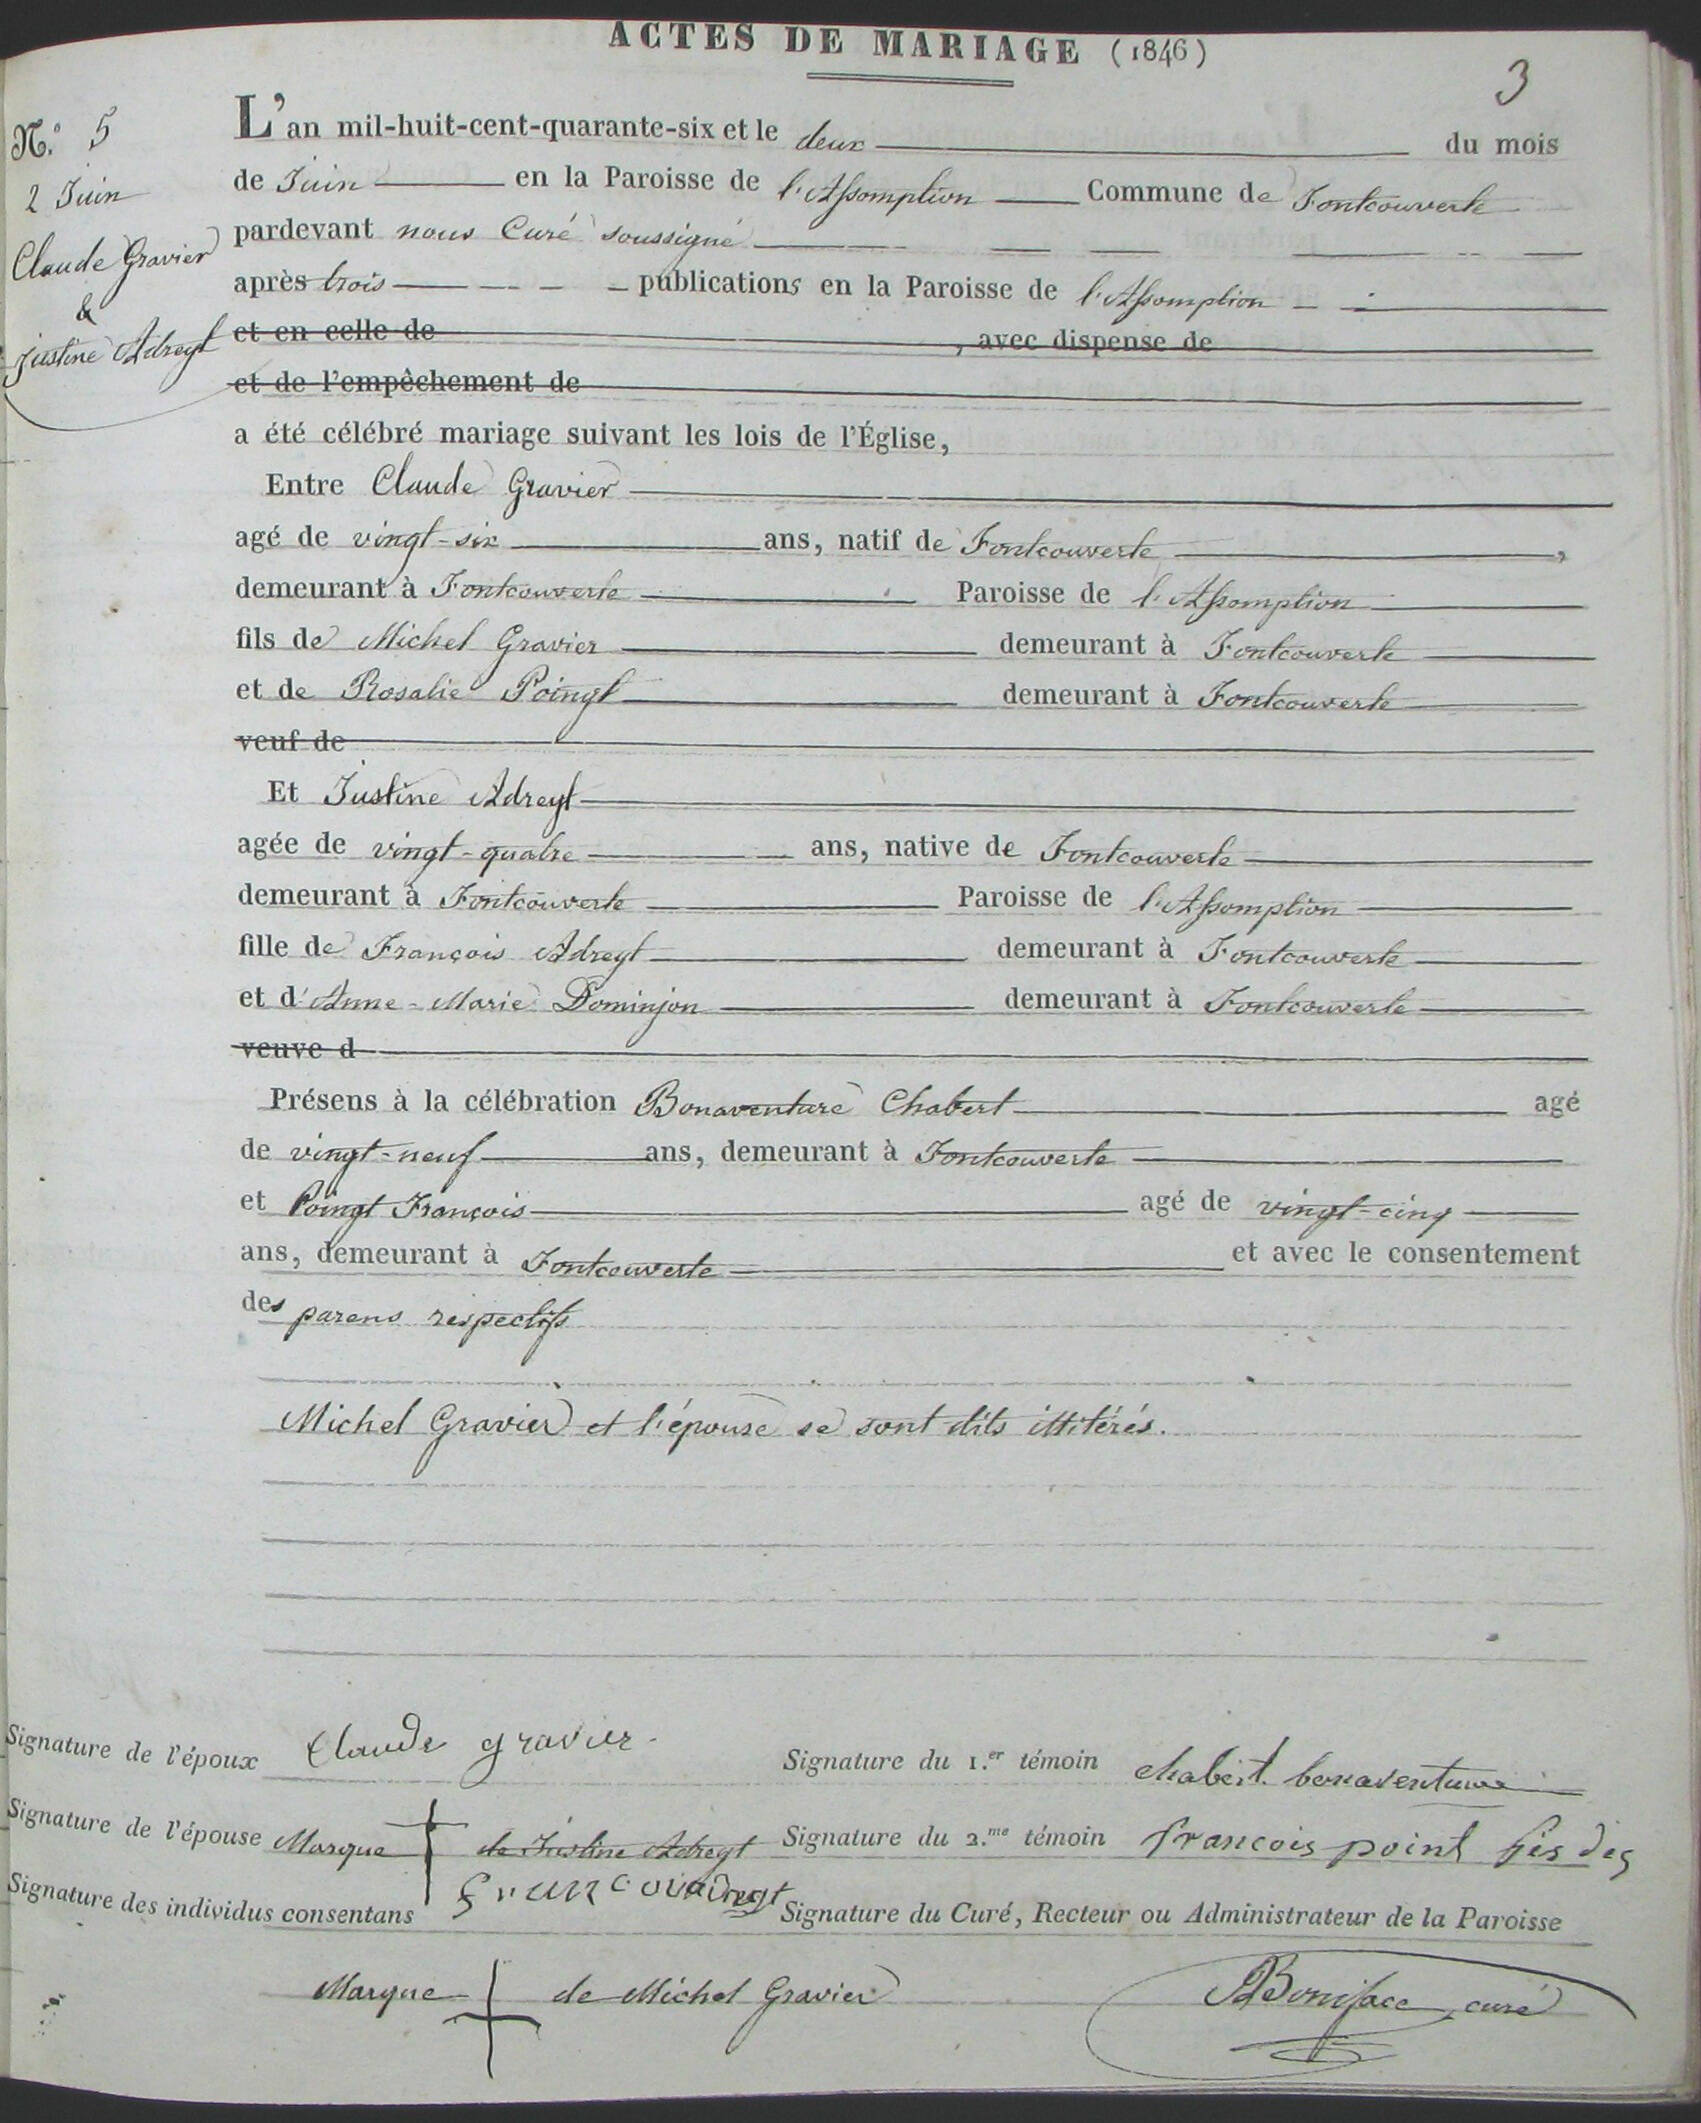 ACTES DE MARIAGE (1846)
3
N.° 5
2 Juin
Claude Gravier
&
Justine Adreyt
L'an mil-huit-cent-quarante-six et le deux du mois
de Juin en la Paroisse de l'Assomption Commune de Fontcouverte
pardevant nous Curé soussigné
après trois publications en la Paroisse de l'Assomption
et en celle de , avec dispense de
et de l'empêchement de
a été célébré mariage suivant les lois de l'Église,
Entre Claude Gravier
agé de vingt-six ans, natif de Fontcouverte ,
demeurant à Fontcouverte Paroisse de l'Assomption
fils de Michel Gravier demeurant à Fontcouverte
et de Rosalie Poingt demeurant à Fontcouverte
veuf de
Et Justine Adreyt
agée de vingt-quatre ans, native de Fontcouverte
demeurant à Fontcouverte Paroisse de l'Assomption
fille de François Adreyt demeurant à Fontcouverte
et d'Anne-Marie Dominjon demeurant à Fontcouverte
veuve d
Présens à la célébration Bonaventure Chabert agé
de vingt-neuf ans, demeurant à Fontcouverte
et Poingt François agé de vingt-cinq
ans, demeurant à Fontcouverte et avec le consentement
des parens respectifs
Michel Gravier et l'épouse se sont dits illitérés.
Signature de l'époux Claude gravier
Signature du 1.er témoin chabert bonaventure
Signature de l'épouse Marque de Justine Adreyt
Signature du 2.me témoin francois point
Signature des individus consentans
Signature du Curé, Recteur ou Administrateur de la Paroisse
Marque de Michel Gravier
Boniface curé